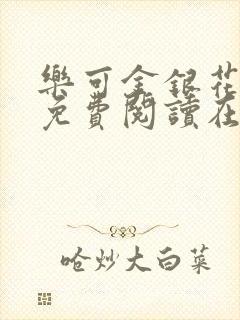 樂可金銀花
免費閱讀在
嗆炒大白菜